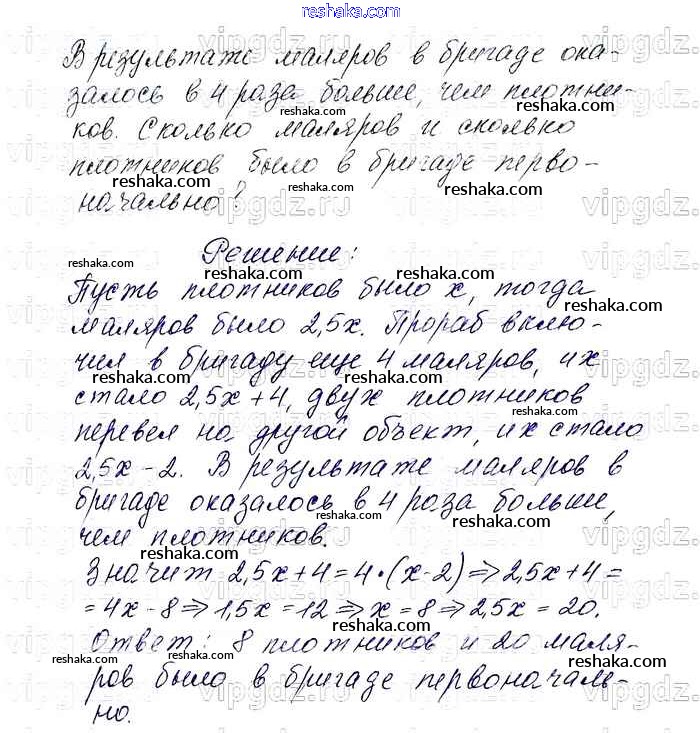 reshaka.com
В результате маляров в бригаде ока-
залось в 4 раза больше, чем плотни-
ков. Сколько маляров и сколько
плотников было в бригаде перво-
начально?
Решение:
Пусть плотников было x, тогда
маляров было 2,5x. Прораб вклю-
чил в бригаду еще 4 маляров, их
стало 2,5x+4, двух плотников
перевел на другой объект, их стало
2,5x-2. В результате маляров в
бригаде оказалось в 4 раза больше,
чем плотников.
Значит 2,5x+4=4·(x-2)⇒2,5x+4=
=4x-8⇒1,5x=12⇒x=8⇒2,5x=20.
Ответ: 8 плотников и 20 маля-
ров было в бригаде первоначаль-
но.